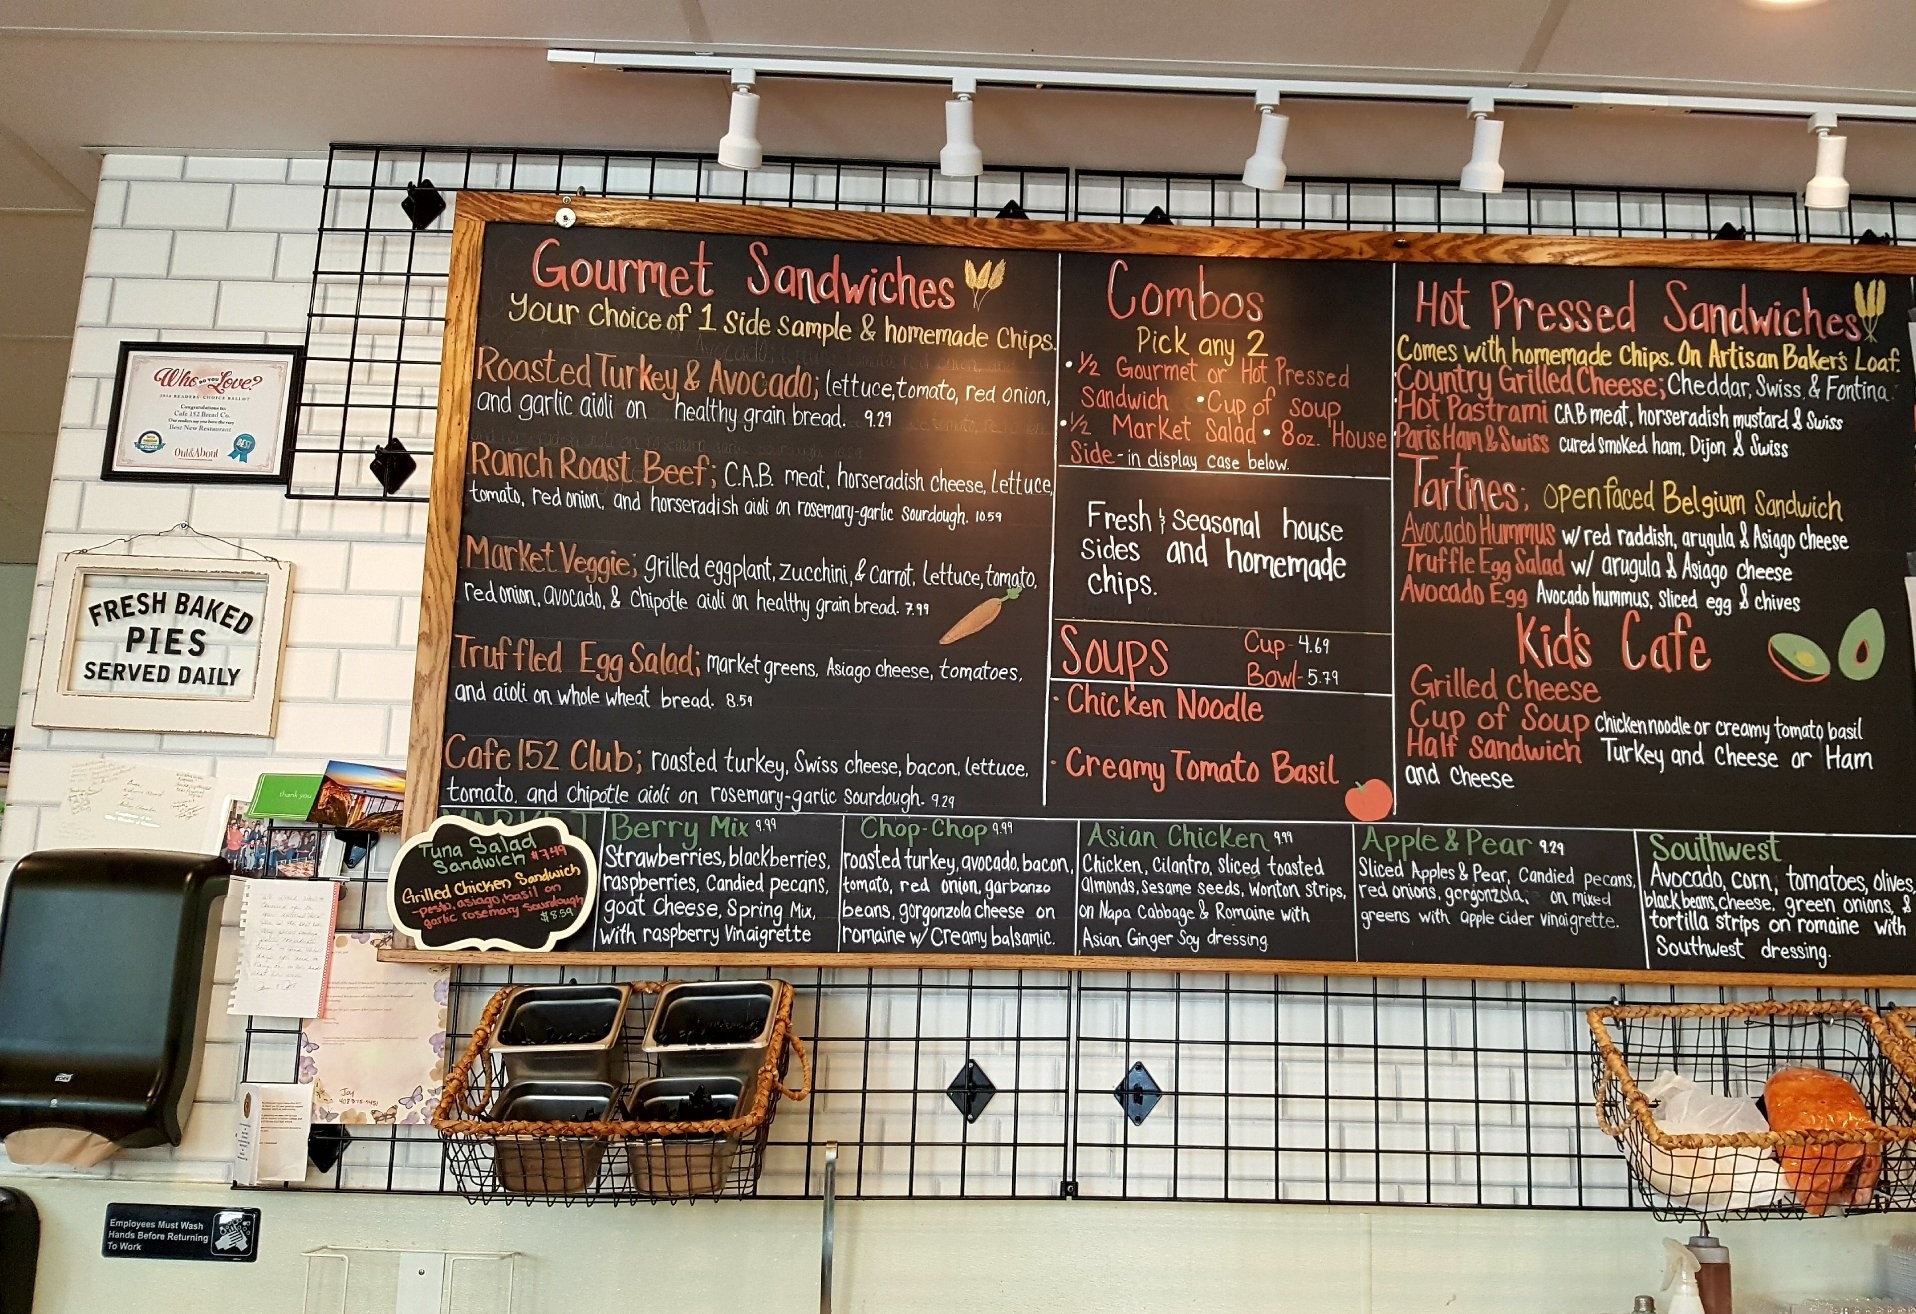 Gourmet Sandwiches
Your Choice of 1 Side Sample & homemade Chips.
Roasted Turkey & Avocado; lettuce, tomato, red onion,
and garlic aioli on healthy grain bread. 9.29
Ranch Roast Beef; C.A.B. meat, horseradish cheese, Lettuce,
tomato, red onion, and horseradish aioli on rosemary-garlic Sourdough. 10.59
Market Veggie; grilled eggplant, zucchini, & Carrot, Lettuce, tomato,
red onion, avocado, & Chipotle aioli on healthy grain bread. 7.99
Truffled Egg Salad; market greens, Asiago cheese, tomatoes,
and aioli on whole wheat bread. 8.59
Cafe 152 Club; roasted turkey, Swiss cheese, bacon, lettuce,
tomato, and Chipotle aioli on rosemary-garlic Sourdough. 9.29
Combos
Pick any 2
• 1/2 Gourmet or Hot Pressed
Sandwich • Cup of soup
• 1/2 Market Salad • 8oz. House
Side - in display case below.
Fresh & Seasonal house
sides and homemade
chips.
Soups Cup - 4.69
Bowl - 5.79
• Chicken Noodle
• Creamy Tomato Basil
Hot Pressed Sandwiches
Comes with homemade Chips. On Artisan Baker's Loaf.
Country Grilled Cheese; Cheddar, Swiss, & Fontina.
Hot Pastrami CAB meat, horseradish mustard & Swiss
Paris Ham & Swiss cured smoked ham, Dijon & Swiss
Tartines; Open faced Belgium Sandwich
Avocado Hummus w/ red raddish, arugula & Asiago cheese
Truffle Egg Salad w/ arugula & Asiago cheese
Avocado Egg Avocado hummus, sliced egg & chives
Kid's Cafe
Grilled Cheese
Cup of Soup Chicken noodle or creamy tomato basil
Half Sandwich Turkey and Cheese or Ham
and Cheese
MARKET
Tuna Salad
Sandwich $7.49
Grilled Chicken Sandwich
- pesto, asiago, basil on
garlic rosemary sourdough
$8.59
Berry Mix 9.99
Strawberries, blackberries,
raspberries, Candied pecans,
goat Cheese, Spring Mix,
with raspberry Vinaigrette
Chop-Chop 9.99
roasted turkey, avocado, bacon,
tomato, red onion, garbanzo
beans, gorgonzola cheese on
romaine w/ Creamy balsamic.
Asian Chicken 9.99
Chicken, Cilantro, sliced toasted
almonds, sesame seeds, Wonton strips,
on Napa Cabbage & Romaine with
Asian Ginger Soy dressing
Apple & Pear 9.29
Sliced Apples & Pear, Candied pecans,
red onions, gorgonzola, on mixed
greens with apple cider vinaigrette.
Southwest
Avocado, corn, tomatoes, olives,
black beans, cheese, green onions, &
tortilla strips on romaine with
Southwest dressing.
Who DO YOU Love?
2016 READERS' CHOICE BALLOT
Congratulations to:
Cafe 152 Bread Co.
Our readers say you have the very
Best New Restaurant
Out&About
FRESH BAKED
PIES
SERVED DAILY
thank you
Tork
Joy
Employees Must Wash
Hands Before Returning
To Work